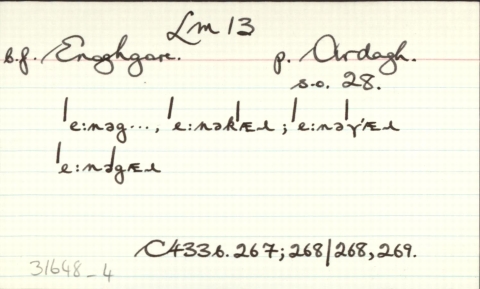 Lm 13
b.f. Enaghgare. p. Ardagh.
s.o. 28.
ˈe:nəg..., ˈe:nəkˈÆɹ ; ˈe:nəˈɣÆɹ
ˈe:nəgÆɹ
C433b. 267; 268/268, 269.
31648_4